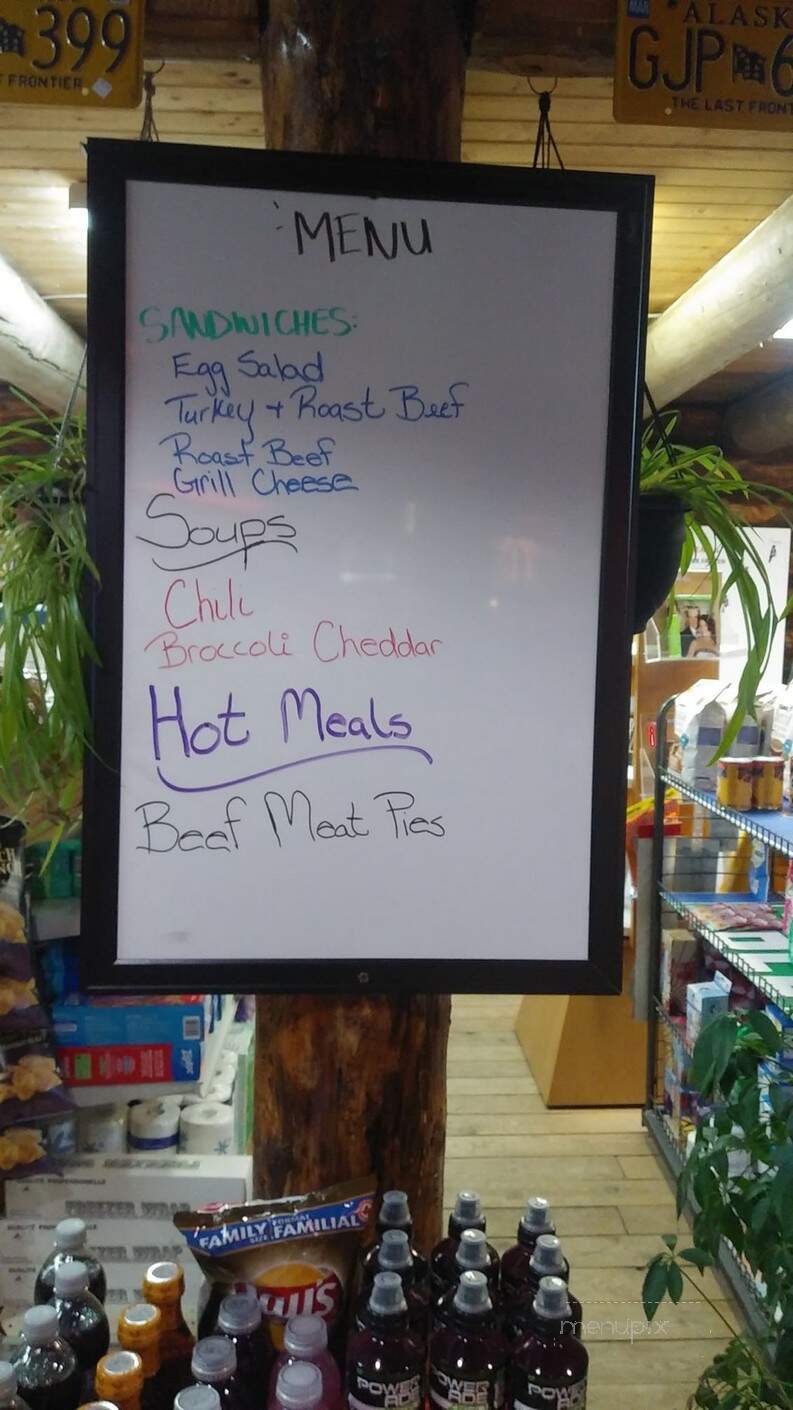 399
FRONTIER
MAR
ALASK
GJP 6
THE LAST FRONT
MENU
SANDWICHES:
Egg Salad
Turkey + Roast Beef
Roast Beef
Grill Cheese
Soups
Chili
Broccoli Cheddar
Hot Meals
Beef Meat Pies
FREEZER WRAP
FREEZER WRAP
FAMILY SIZE FORMAT FAMILIAL
POWERADE
POWERADE
POWERADE
menupix